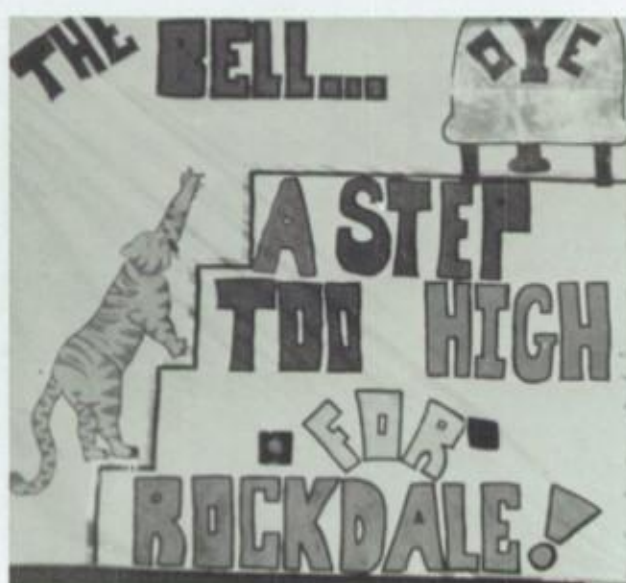 THE BELL...
OYE
A STEP
TOO HIGH
FOR
ROCKDALE!